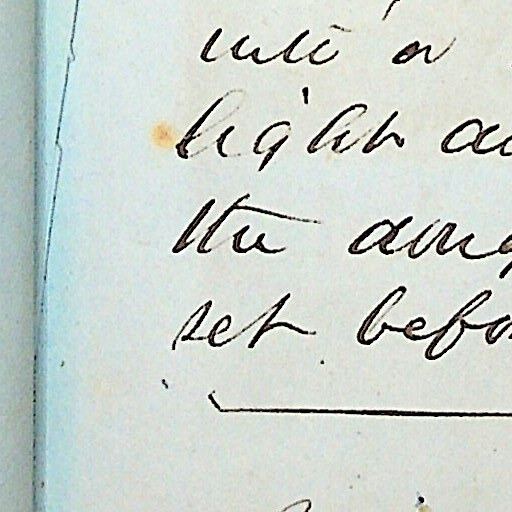 into a
light a
the doug
set befo